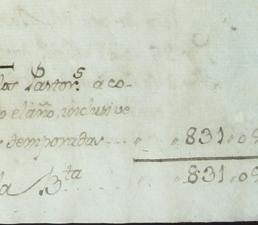 los Pastor.s á co-
o el año, inclusive
temporadas .. 831..0
la 3.ta .. 831..0